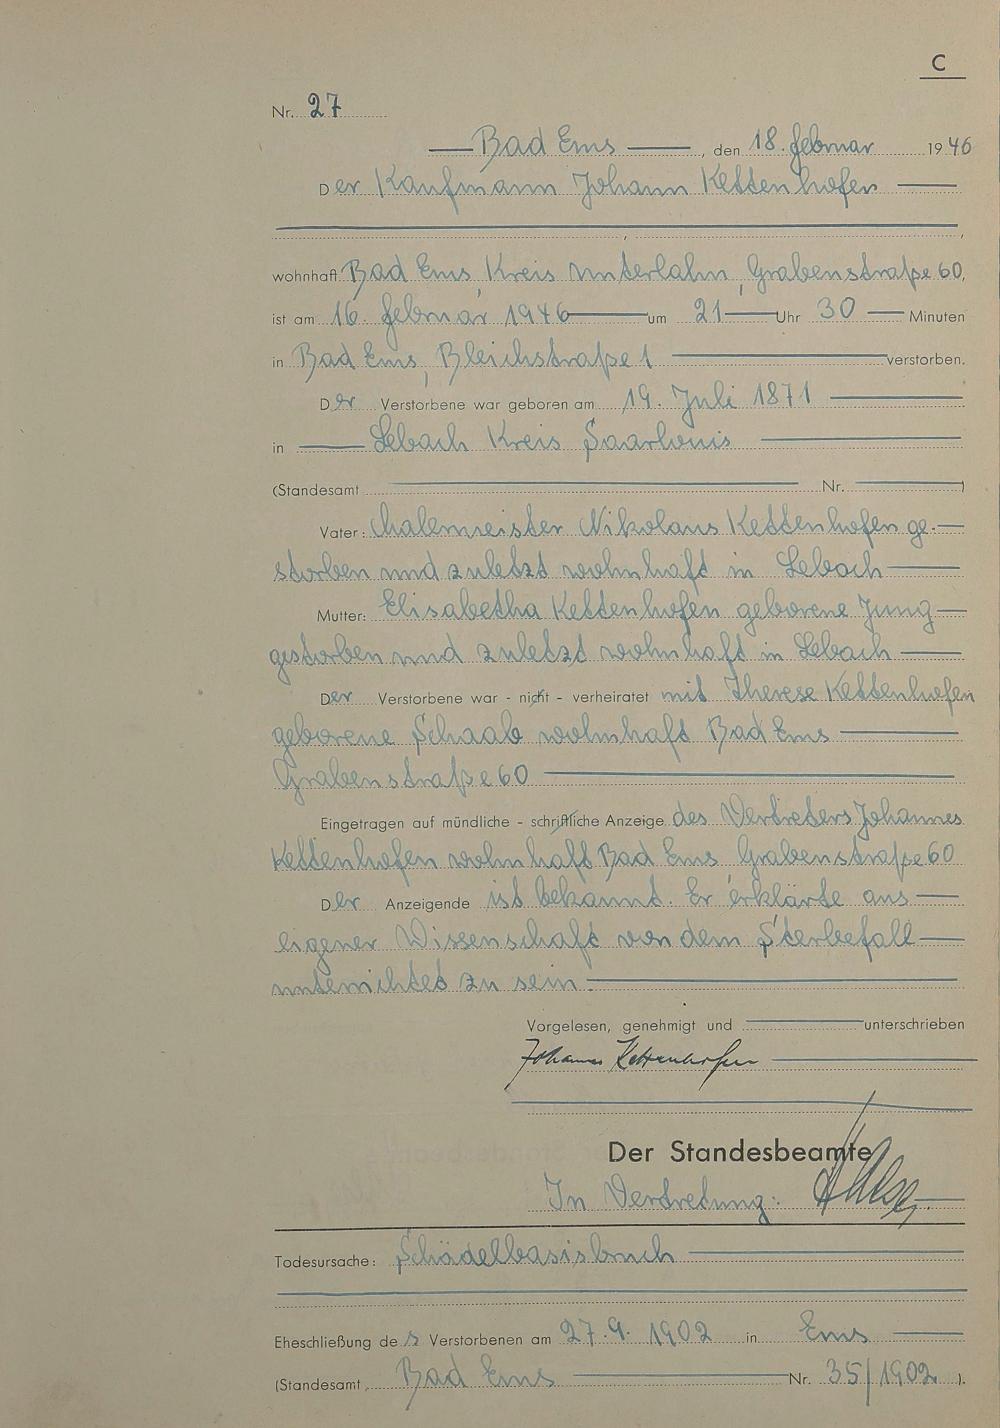 C
Nr. 27
Bad Ems, den 18. Februar 1946
Der Kaufmann Johann Kettenhofen
wohnhaft Bad Ems, Kreis Unterlahn, Grabenstraße 60,
ist am 16. Februar 1946 um 21 Uhr 30 Minuten
in Bad Ems, Bleichstraße 1 verstorben.
Der Verstorbene war geboren am 19. Juli 1871
in Lebach Kreis Saarlouis
(Standesamt Nr. )
Vater: Malermeister Nikolaus Kettenhofen ge-
storben und zuletzt wohnhaft in Lebach
Mutter: Elisabetha Kettenhofen geborene Jung
gestorben und zuletzt wohnhaft in Lebach
Der Verstorbene war - nicht - verheiratet mit Therese Kettenhofen
geborene Schaab wohnhaft Bad Ems
Grabenstraße 60
Eingetragen auf mündliche - schriftliche Anzeige des Vertreters Johannes
Kettenhofen wohnhaft Bad Ems Grabenstraße 60
Der Anzeigende ist bekannt. Er erklärte aus
eigener Wissenschaft von dem Sterbefall
unterrichtet zu sein.
Vorgelesen, genehmigt und unterschrieben
Johannes Kettenhofen
Der Standesbeamte
In Vertretung:
Todesursache: Schädelbasisbruch
Eheschließung des Verstorbenen am 27.9.1902 in Ems
(Standesamt Bad Ems Nr. 35/1902).